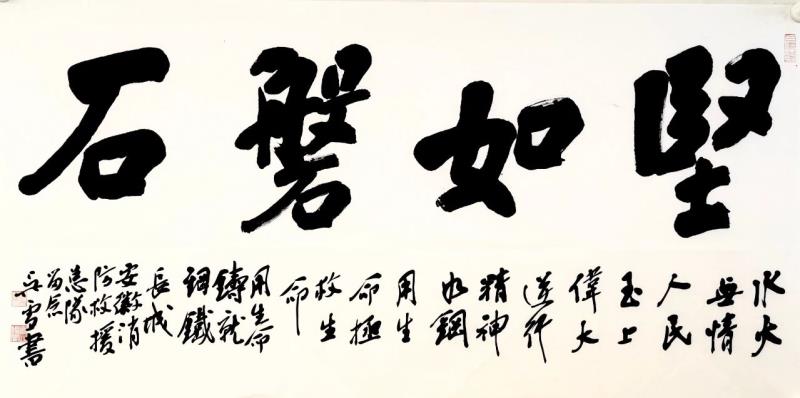 堅如磐石
水火
無情
人民
至上
偉大
逆行
精神
如鋼
用生
命拯
救生
命
用生命
鑄就
鋼鐵
長城
安徽消
防救援
總隊
留念
吴雪書